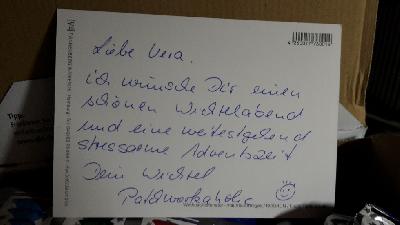 Liebe Vera,
ich wünsche Dir einen
schönen Wichtelabend
und eine weitestgehend
stressarme Adventszeit
Dein Wichtel
Patchworkaholic
Tipp: